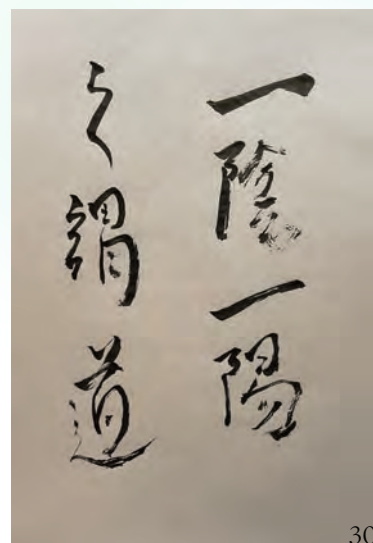 一陰一陽
之謂道
30